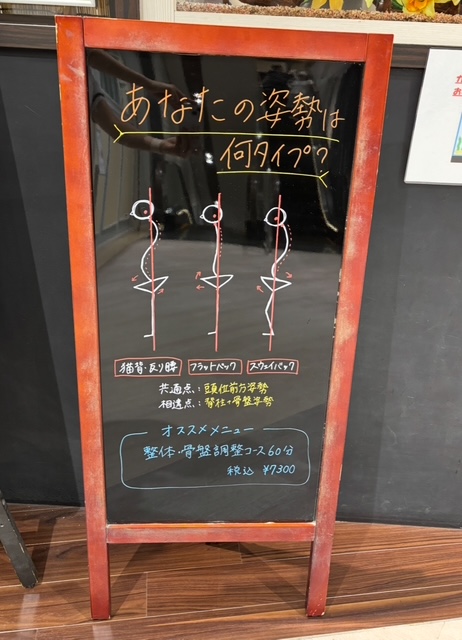 あなたの姿勢は
何タイプ?
猫背・反り腰
フラットバック
スウェイバック
共通点：頭位前方姿勢
相違点：脊柱・骨盤姿勢
オススメメニュー
整体・骨盤調整コース60分
税込 ¥7300